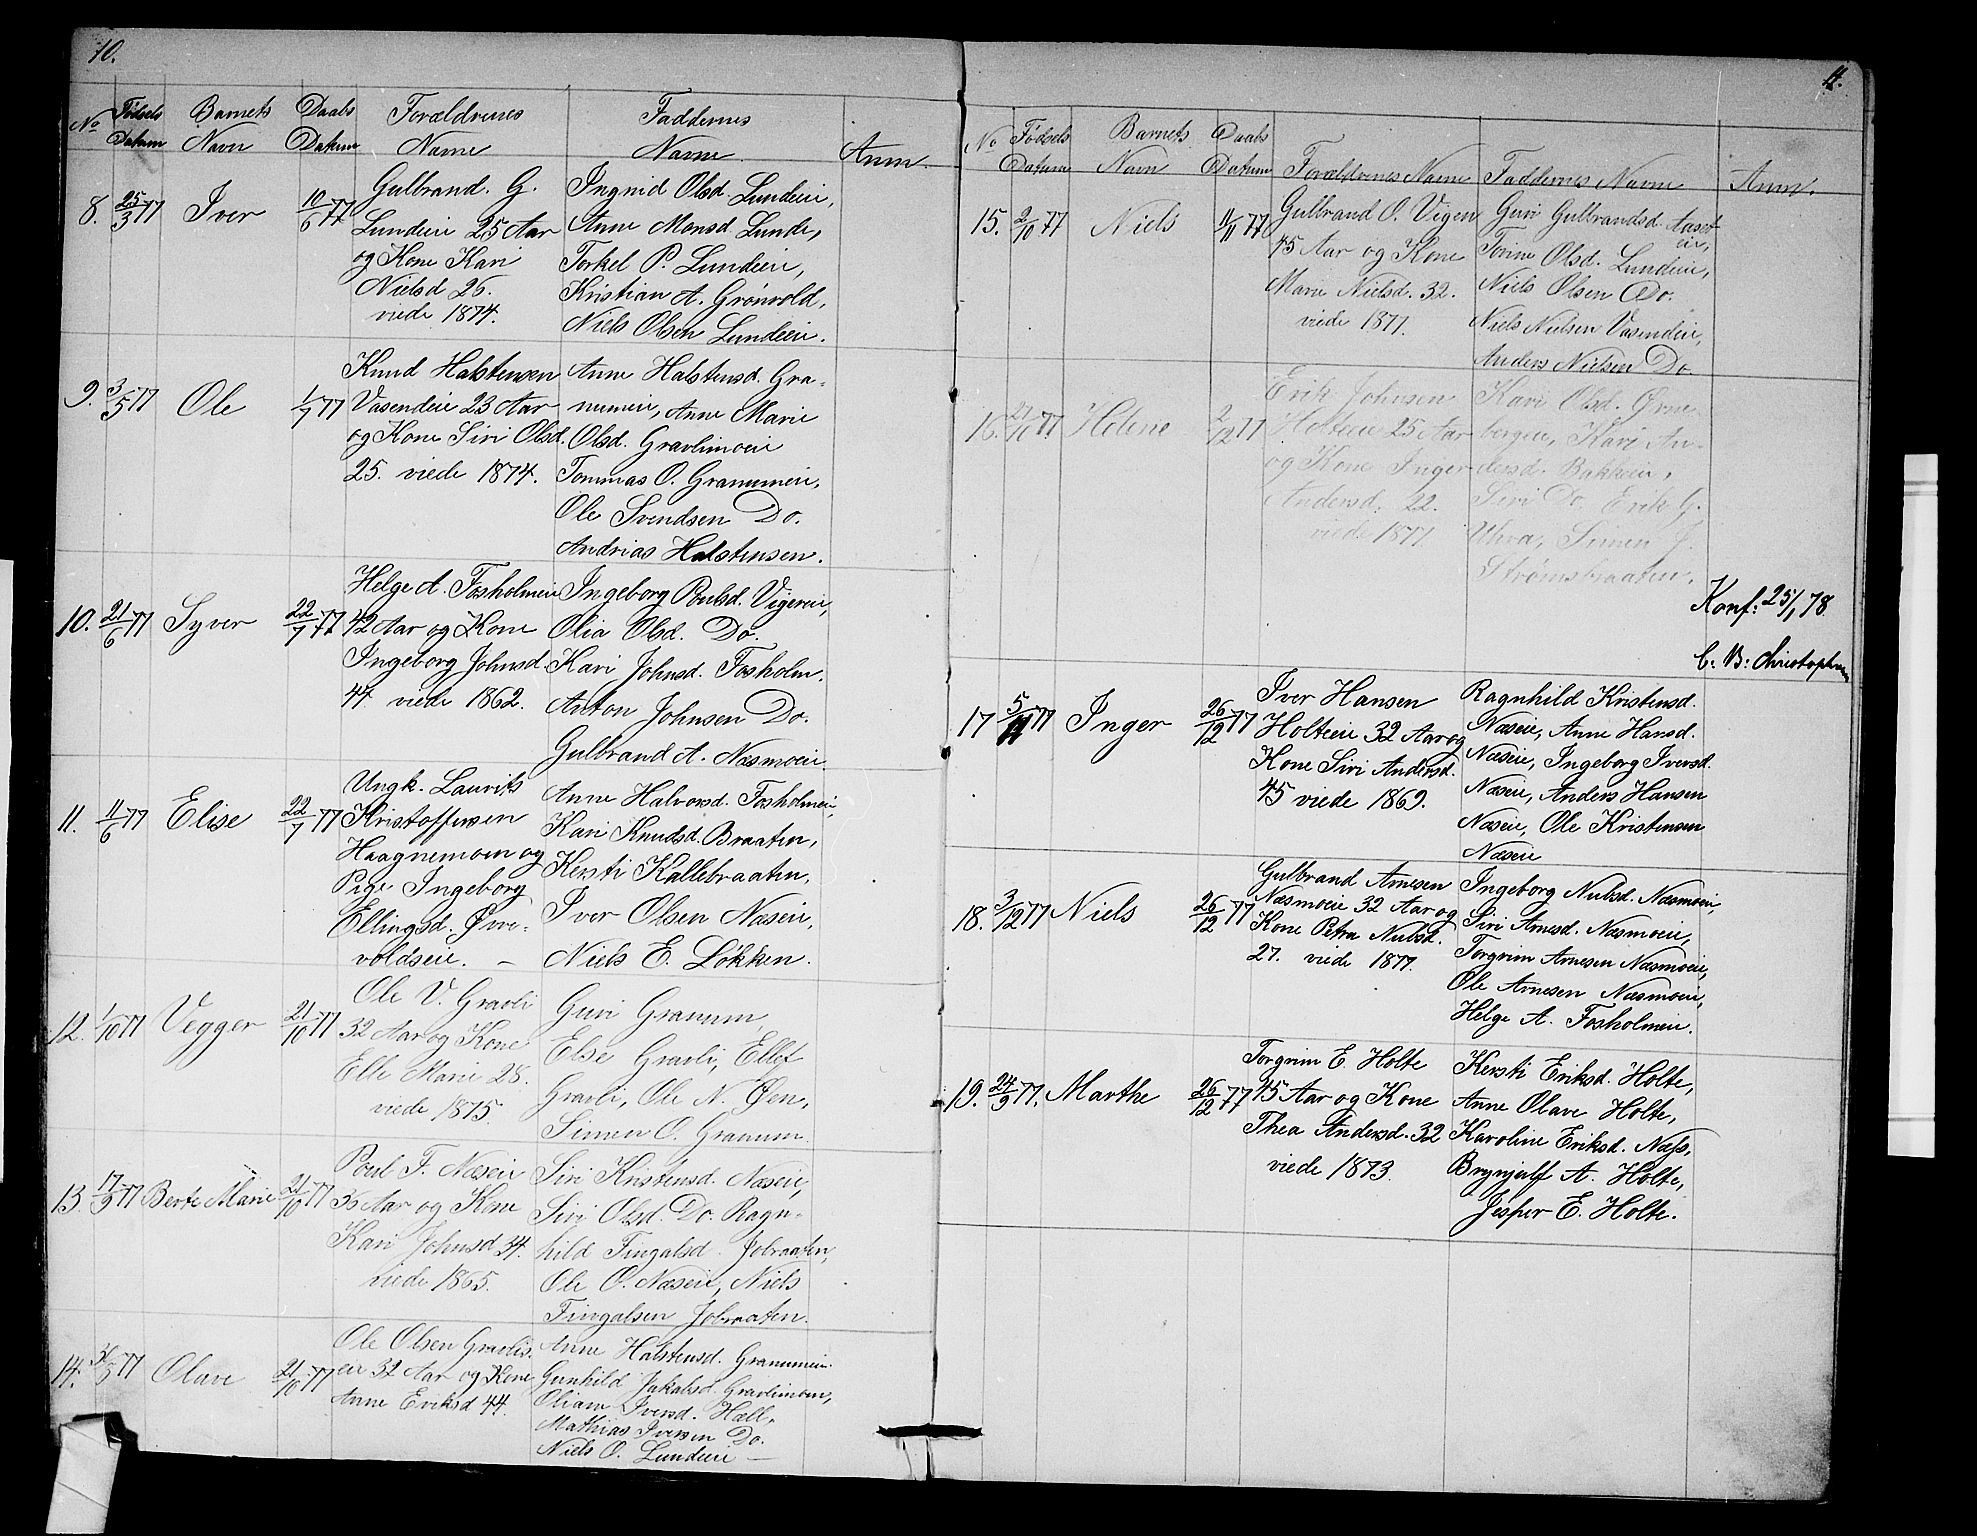 10.
No Fødsels Datum Barnets Navn Daabs Datum Forældrenes Navne Faddernes Navne Anm
8. 25/3 77 Iver 10/6 77
Gulbrand. G.
Lundeie 25 Aar
og Kone Kari
Nielsd 26.
viede 1874.
Ingrid Olsd Lundeie,
Anne Monsd. Lunde,
Torkel P. Lundeie,
Kristian A. Grønvold,
Niels Olsen Lundeie.
9. 3/5 77 Ole 1/7 77
Knud Halstensen
Vasendeie 23 Aar
og Kone Siri Olsd.
25. viede 1874.
Anne Halstensd. Gra-
numeie, Anne Marie
Olsd. Gravlimoeie
Tommas O. Granumeie,
Ole Svendsen Do.
Andrias Halstensen.
10. 21/6 77 Syver 22/7 77
Helge A. Fosholmeie
42 Aar og Kone
Ingeborg Johnsd.
44 viede 1862.
Ingeborg Poulsd. Vigereie,
Olia Olsd. Do.
Kari Johnsd. Fosholm.
Anton Johnsen Do.
Gulbrand A. Næsmoeie.
11. 11/6 77 Elise 22/7 77
Ungk. Laurits
Kristoffersen
Haagnemoen og
Pige Ingeborg
Ellingsd. Øve-
voldseie. –
Anne Halvorsd. Fosholmeie,
Kari Knudsd. Braaten,
Kersti Kallebraaten,
Iver Olsen Næseie,
Niels E. Løkken.
12. 1/10 77 Vegger 21/10 77
Ole V. Gravli
32 Aar og Kone
Elle Marie 28.
viede 1875.
Guri Granum,
Else Gravli, Ellef
Gravli, Ole N. Øen,
Simen O. Granum.
13. 17/9 77 Berte Marie 21/10 77
Poul F. Næseie
Aar og Kone
Kari Johnsd 34.
viede 1865.
Siri Kristensd. Næseie,
Siri Olsd. Do. Ragn-
hild Fingalsd. Jobraaten,
Ole O. Næseie, Niels
Fingalsen Jobraaten.
14. 77 Olave 21/10 77
Ole Olsen Gravlis-
eie 32 Aar og Kone
Anne Eriksd 44.
Anne Halstensd. Granumeie.
Gunhild Jakobsd. Gravlimoen,
Oliane Iversd. Hæll,
Mathias Iversen Do.
Niels O. Lundeie —
11.
No Fødsels Datum Barnets Navn Daabs Datum Forældrenes Navne Faddernes Navne Anm.
15. 2/10 77 Niels 11/11 77
Gulbrand O. Vigen
45 Aar og Kone
Marie Nielsd. 32.
viede 1877.
Guri Gulbrandsd. Aaset-
eie,
Torine Olsd. Lundeie,
Niels Olsen Do.
Niels Nielsen Vasendeie,
Anders Nielsen Do.
16. 21/10 77. Helene 2/12 77
Erik Johnsen
Holteeie 25 Aar
og Kone Inger
Andersd. 22.
viede 1877
Kari Olsd. Ørne-
bergeie, Kari An-
dersd. Bakkeeie,
Siri Do. Erik G.
Uhva, Simen J.
Strømsbraaten.
Konf: 25/1 78.
C. B: Christophersen
17 5/11 77 Inger 26/12 77
Iver Hansen
Holteeie 32 Aar og
Kone Siri Andersd.
45 viede 1869.
Ragnhild Kristensd.
Næseie, Anne Hansd.
Næseie, Ingeborg Iversd.
Næseie, Anders Hansen
Næseie, Ole Kristensen
Næseie
18. 3/12 77 Niels 26/12 77
Gulbrand Arnesen
Næsmoeie 32 Aar og
Kone Petra Nielsd.
27. viede 1877.
Ingeborg Nielsd. Næsmoeie,
Siri Arnesd. Næsmoeie,
Torgrim Arnesen Næsmoeie,
Ole Arnesen Næsmoeie,
Helge A. Fosholmeie.
19. 24/9 77. Marthe 26/12 77
Torgrim E. Holte
45 Aar og Kone
Thea Andersd. 32
viede 1873.
Kersti Eriksd. Holte,
Anne Olave Holte,
Karoline Eriksd. Næss,
Brynjulf A. Holte,
Jesper E. Holte.